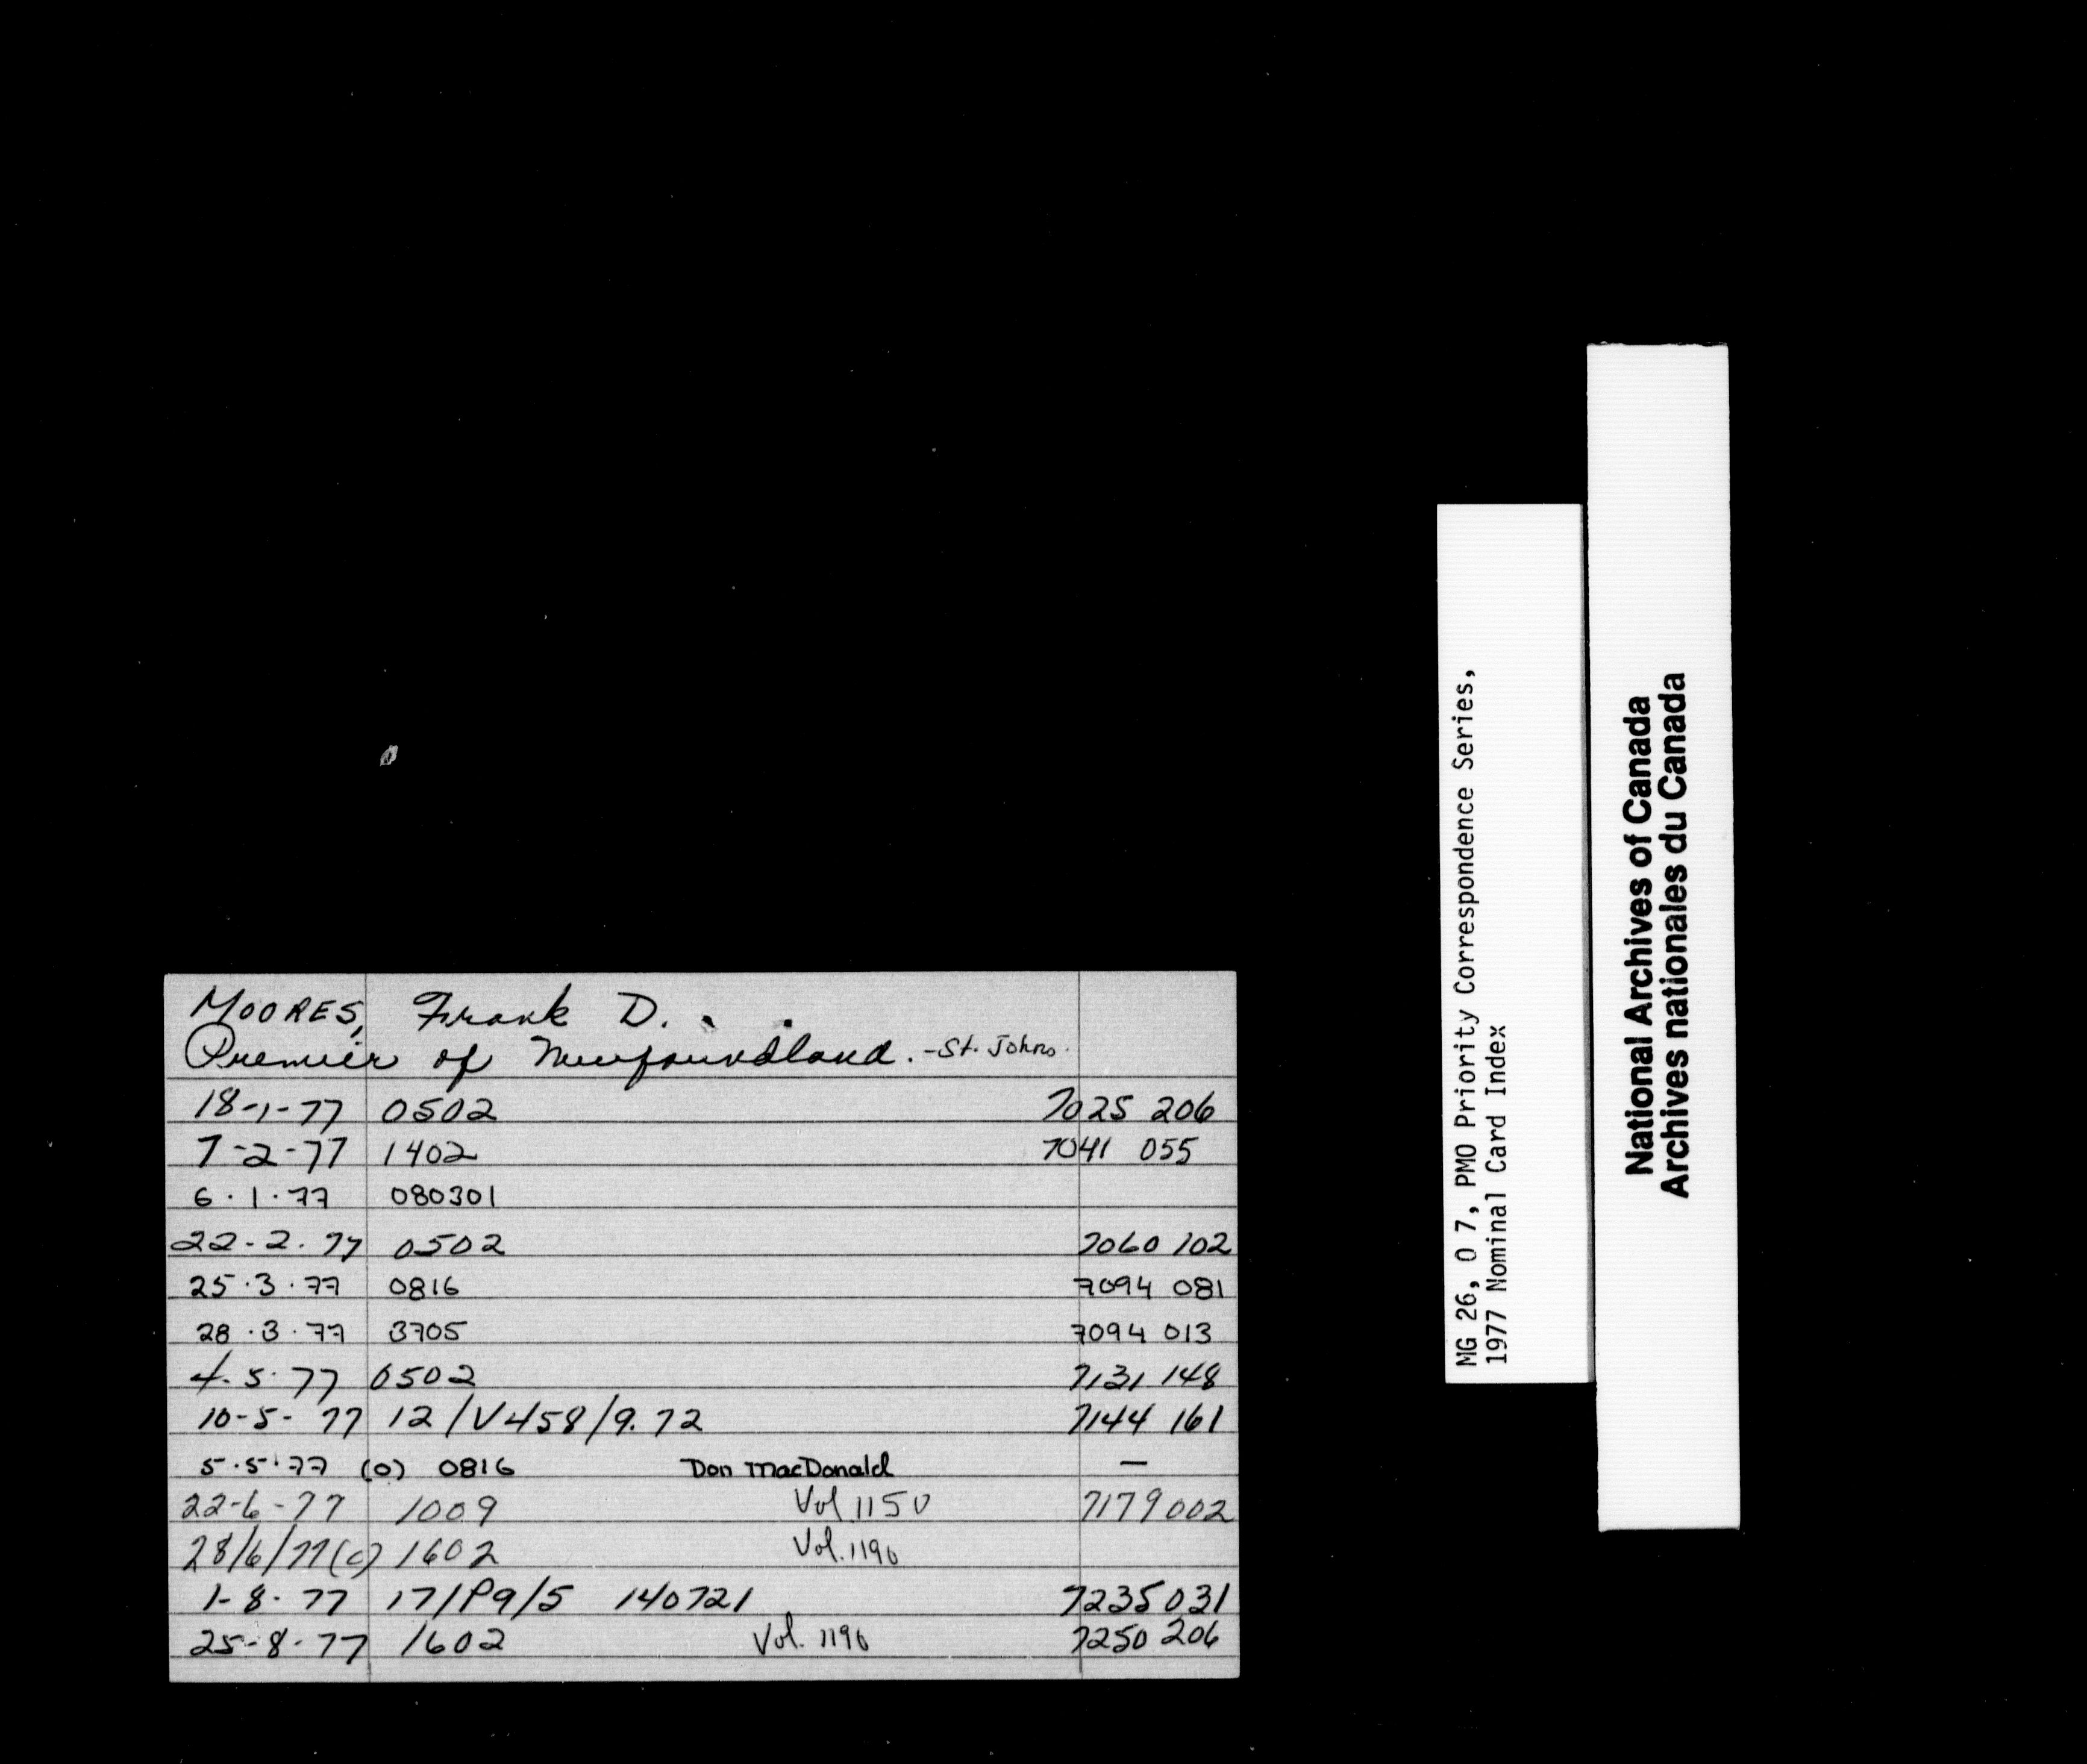 MOORES, Frank D.
Premier of Newfoundland. - St. Johns.
18-1-77 0502 7025 206
7-2-77 1402 7041 055
6.1.77 080301
22-2.77 0502 7060 102
25.3.77 0816 7094 081
28.3.77 3705 7094 013
4.5.77 0502 7131 148
10-5-77 12/V458/9.72 7144 161
5.5.77 (0) 0816 Don MacDonald —
22-6-77 1009 Vol 1150 7179 002
28/6/77(c) 1602 Vol. 1190
1-8.77 17/P9/5 140721 7235 031
25-8-77 1602 Vol. 1190 7250 206
MG 26, O 7, PMO Priority Correspondence Series,
1977 Nominal Card Index
National Archives of Canada
Archives nationales du Canada